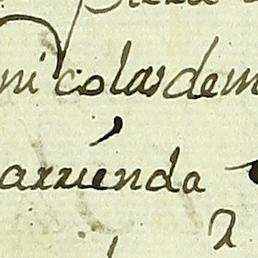 ni colas dem
arrienda
2